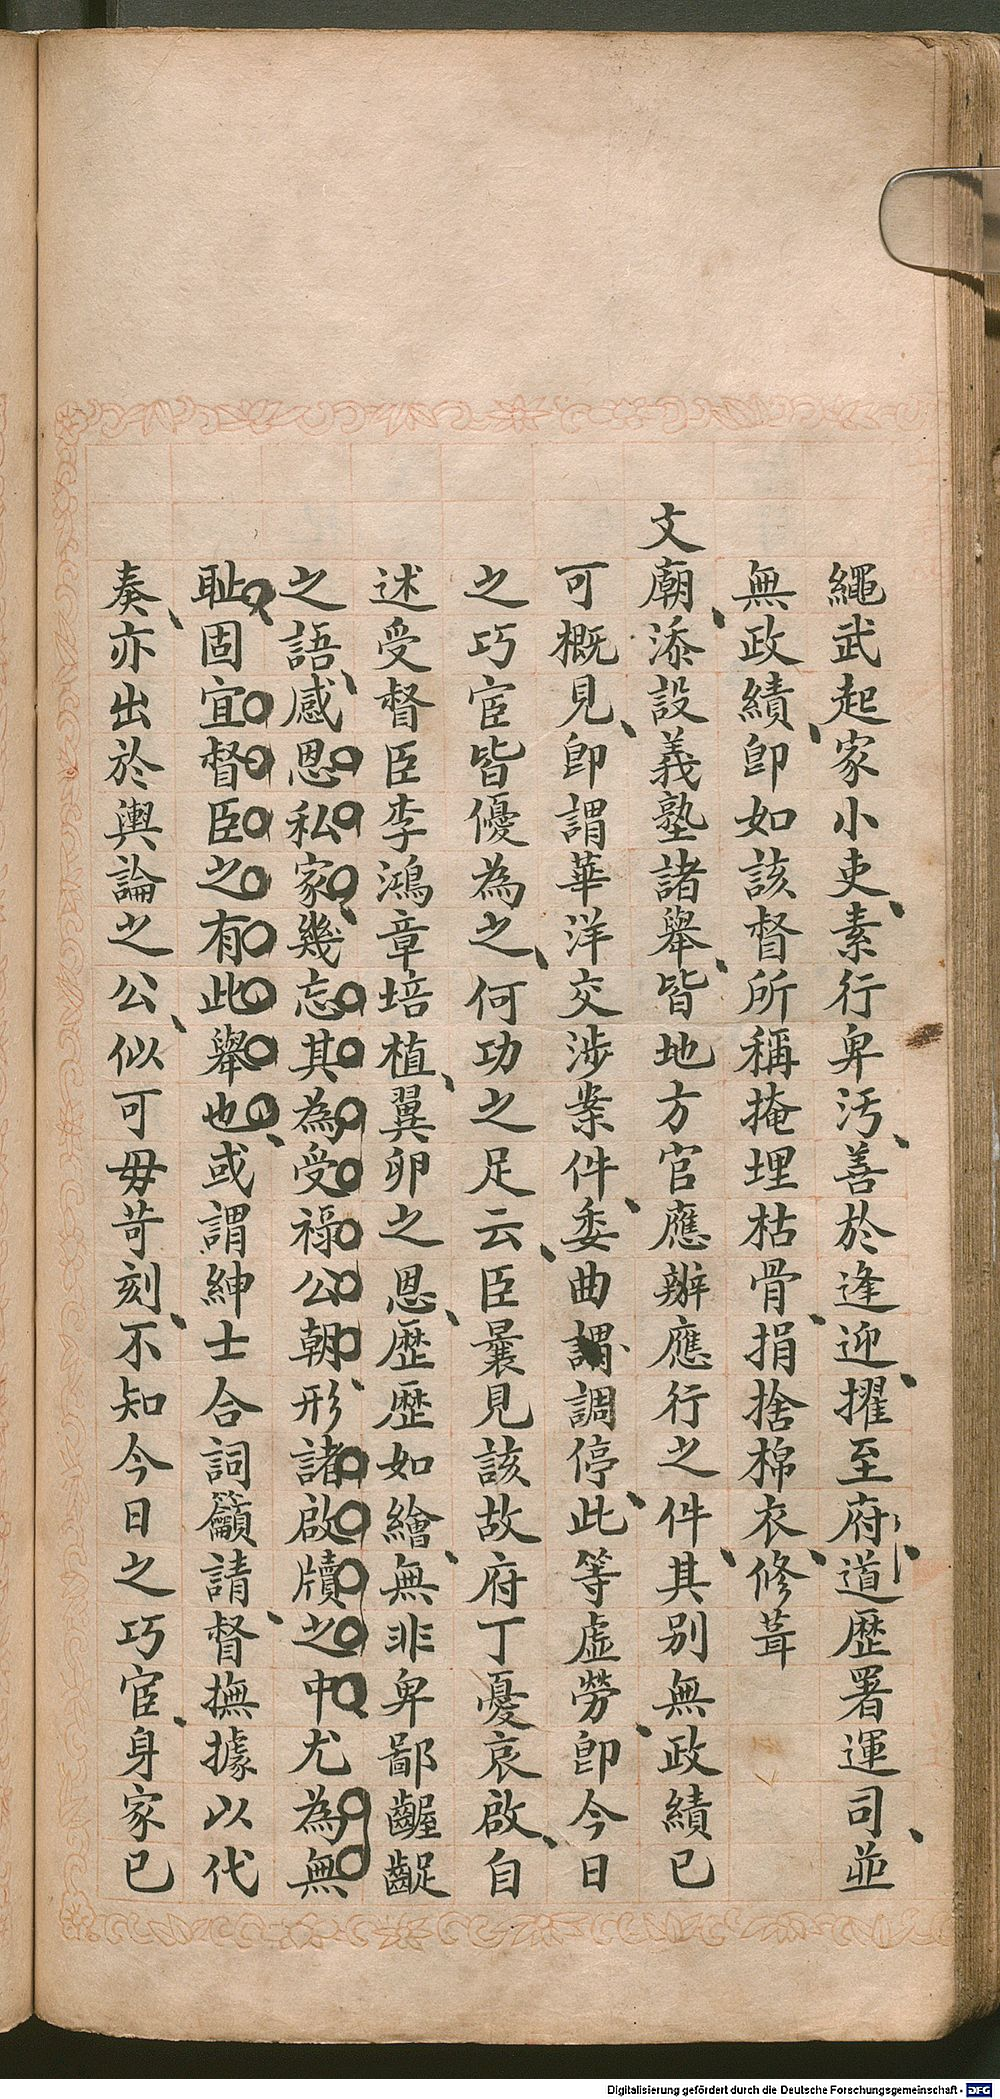 繩武起家小吏素行卑汚善於逢迎擢至府道歷署運司並
無政績卽如該督所稱掩埋枯骨捐捨棉衣修葺
文廟添設義塾諸舉皆地方官應辦應行之件其別無政績已
可概見卽謂華洋交涉案件委曲調停此等虛勞卽今日
之巧宦皆優為之何功之足云臣曩見該故府丁憂哀啟自
述受督臣李鴻章培植翼卵之恩歷歷如繪無非卑鄙齷齪
之語感恩私家幾忘其為受祿公朝形諸啟牘之中尤為無
耻固宜督臣之有此舉也或謂紳士合詞籲請督撫據以代
奏亦出於輿論之公似可毋苛刻不知今日之巧宦身家已
Digitalisierung gefördert durch die Deutsche Forschungsgemeinschaft - DFG